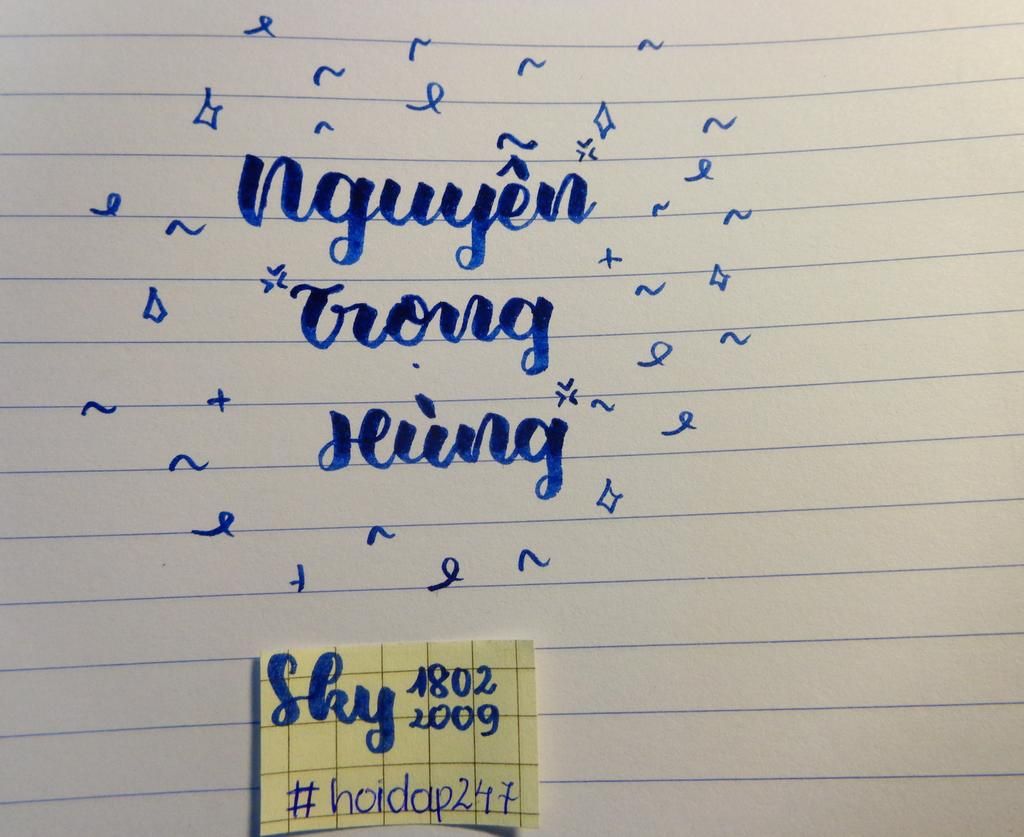 Nguyễn
Trọng
Hùng
Sky 1802
2009
#hoidap247